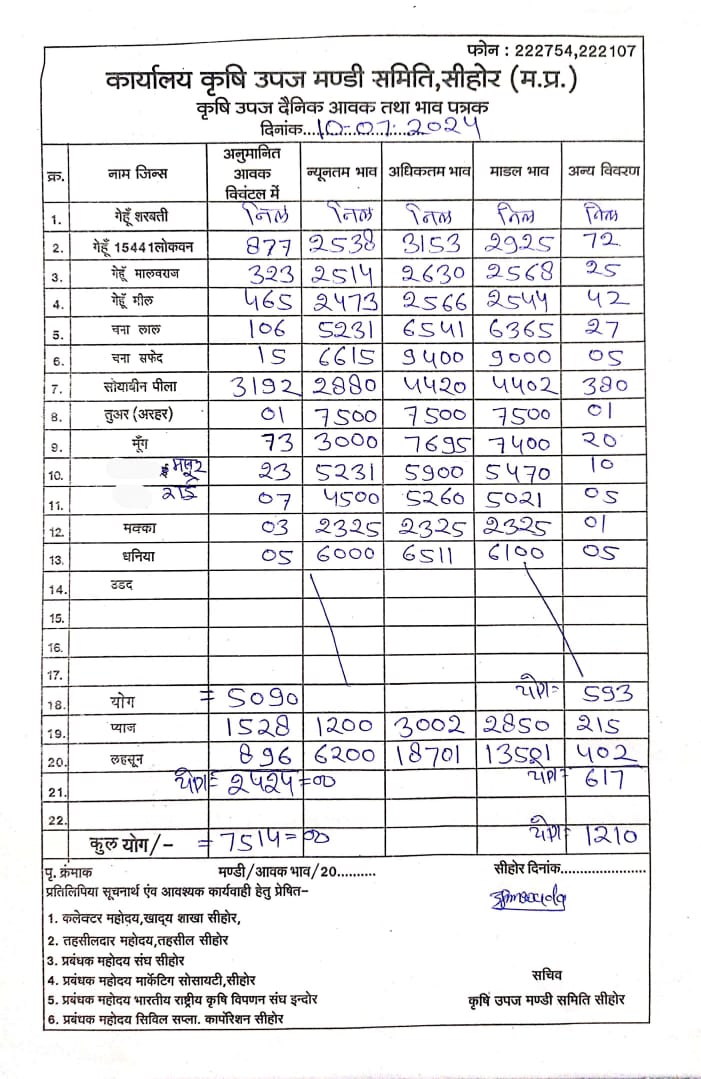 फोन : 222754,222107
कार्यालय कृषि उपज मण्डी समिति,सीहोर (म.प्र.)
कृषि उपज दैनिक आवक तथा भाव पत्रक
दिनांक...10.07.2024
क्र. नाम जिन्स अनुमानित आवक विवंटल में न्यूनतम भाव अधिकतम भाव माडल भाव अन्य विवरण
1. गेहूँ शरबती निल निल निल निल निल
2. गेहूँ 15441लोकवन 877 2538 3153 2925 72
3. गेहूँ मालवराज 323 2514 2630 2568 25
4. गेहूँ मील 465 2473 2566 2544 42
5. चना लाल 106 5231 6541 6365 27
6. चना सफेद 15 6615 9400 9000 05
7. सोयाबीन पीला 3192 2880 4420 4402 380
8. तुअर (अरहर) 01 7500 7500 7500 01
9. मूँग 73 3000 7695 7400 20
10. मसूर 23 5231 5900 5470 10
11. राई 07 4500 5260 5021 05
12. मक्का 03 2325 2325 2325 01
13. धनिया 05 6000 6511 6100 05
14. उडद
15.
16.
17.
18. योग = 5090 योग= 593
19. प्याज 1528 1200 3002 2850 215
20. लहसून 896 6200 18701 13501 402
21. योग= 2424=00 योग= 617
22.
कुल योग/- = 7514=00 योग= 1210
पृ. क्रंमाक मण्डी/आवक भाव/20.......... सीहोर दिनांक......................
प्रतिलिपिया सूचनार्थ एंव आवश्यक कार्यवाही हेतु प्रेषित-
1. कलेक्टर महोद़य,खाद्य शाखा सीहोर,
2. तहसीलदार महोदय,तहसील सीहोर
3. प्रबंधक महोदय संघ सीहोर
4. प्रबंधक महोदय मार्केटिग सोसायटी,सीहोर
सचिव
5. प्रबंधक महोदय भारतीय राष्ट्रीय कृषि विपणन संघ इन्दोर
कृषि उपज मण्डी समिति सीहोर
6. प्रबंधक महोदय सिविल सप्ला. कार्पोरेशन सीहोर